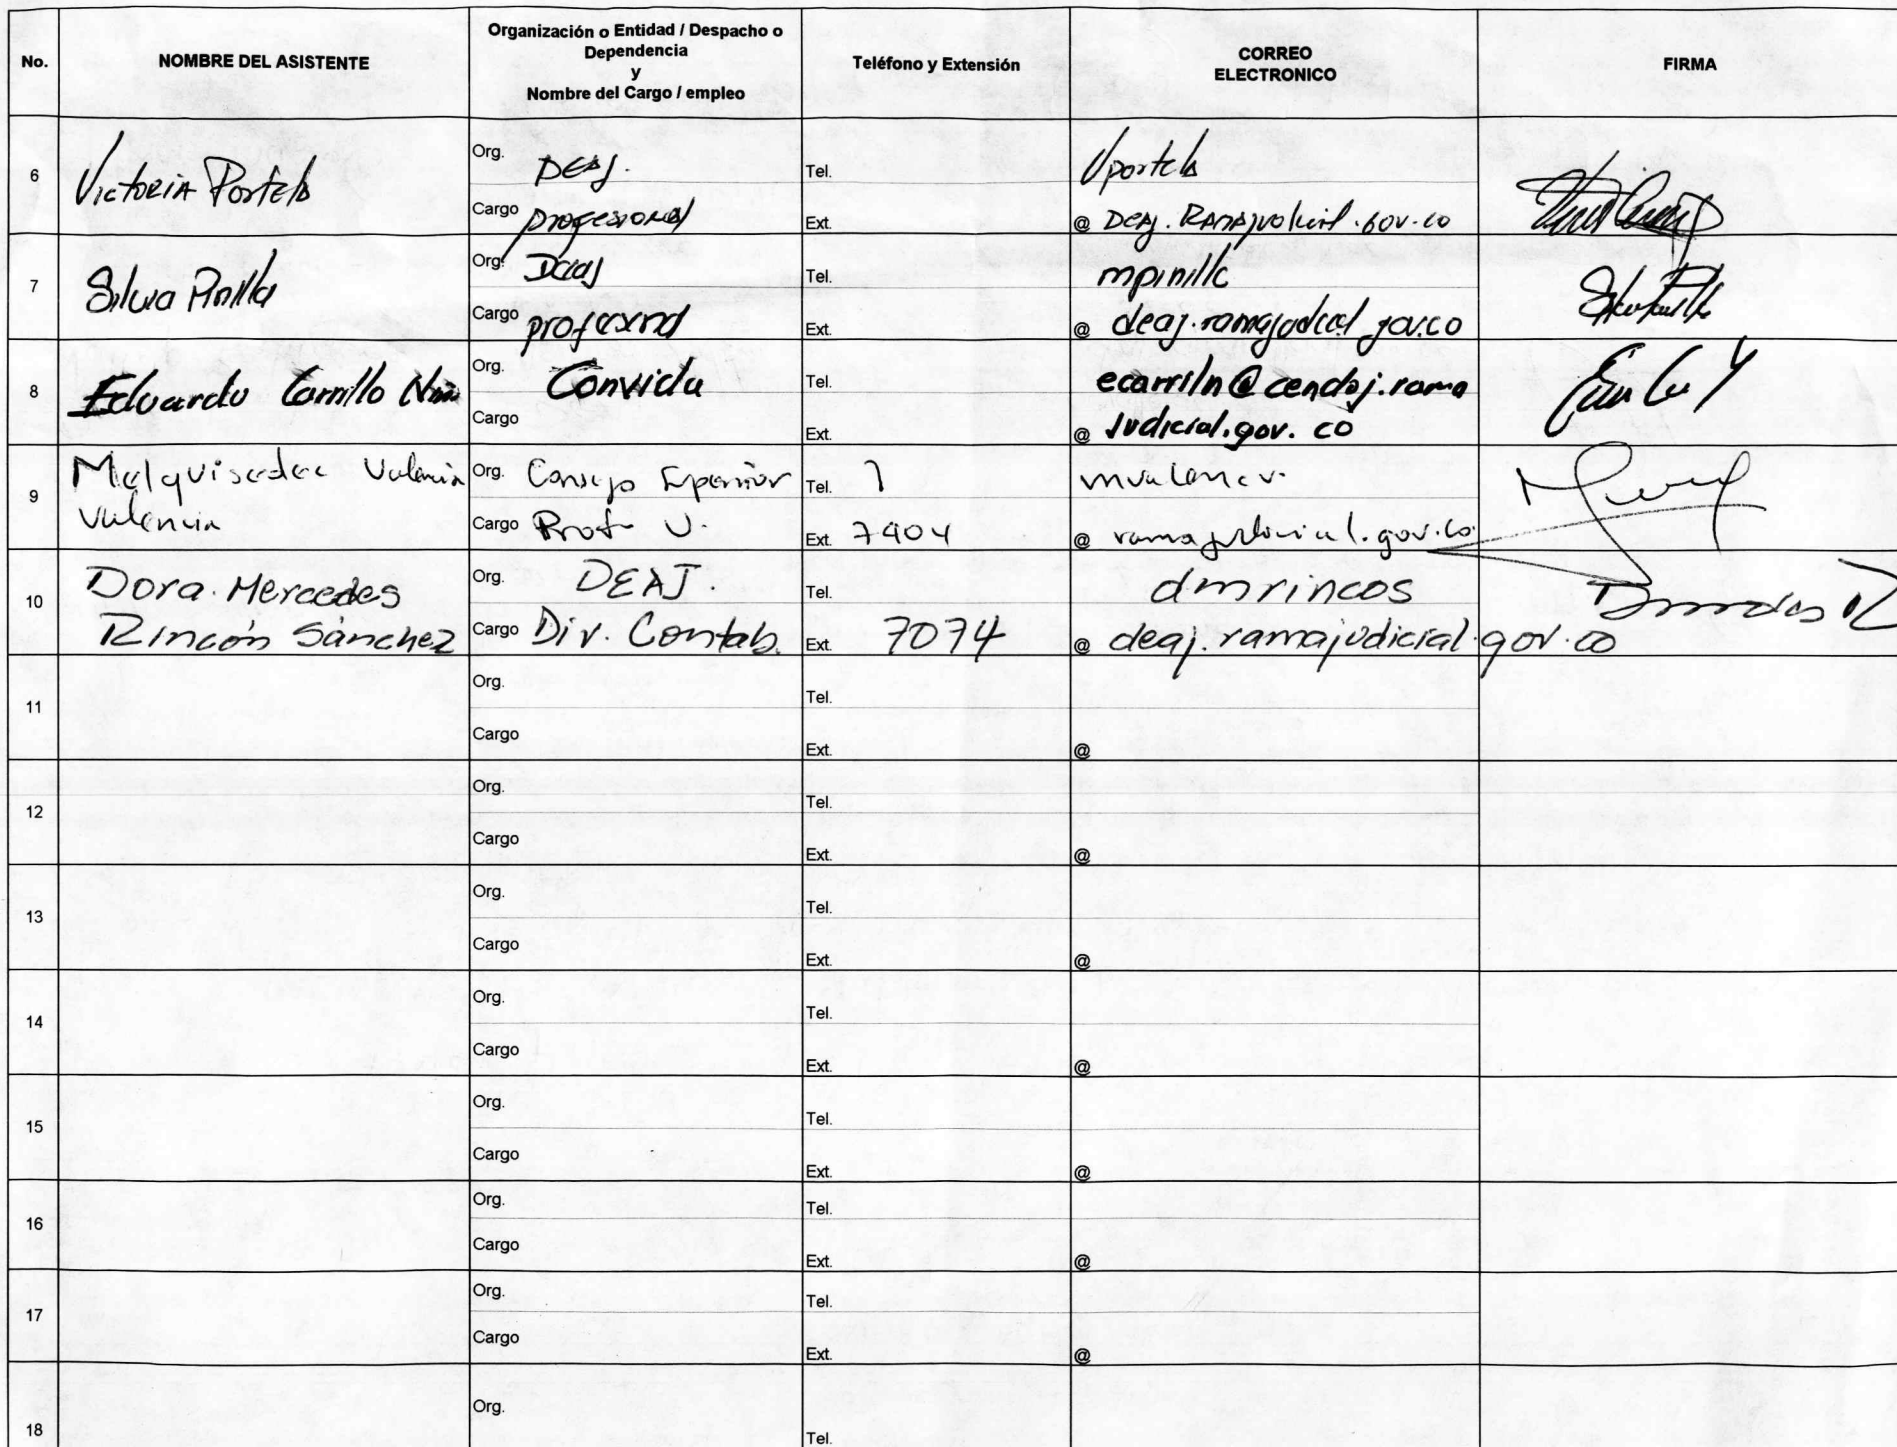 No.
NOMBRE DEL ASISTENTE
Organización o Entidad / Despacho o
Dependencia
y
Nombre del Cargo / empleo
Teléfono y Extensión
CORREO
ELECTRONICO
FIRMA
6
Victoria Portela
Org. DEAJ.
Cargo profesional
Tel.
Ext.
Vportela
@ DEAJ.RAMAJudicial.GOV.CO
7
Silvia Pinilla
Org. Deaj
Cargo profesional
Tel.
Ext.
mpinilla
@ deaj.ramajudicial.gov.co
8
Eduardo Carrillo
Org. Convida
Cargo
Tel.
Ext.
ecarriln@cendoj.rama
@ Judicial.gov.co
9
Melquisedec Valencia
Valencia
Org. Consejo Superior
Cargo Prof. U.
Tel.
Ext. 7404
@ ramajudicial.gov.co
10
Dora Mercedes
Rincón Sánchez
Org. DEAJ.
Cargo Div. Contab.
Tel.
Ext. 7074
dmrincos
@ deaj.ramajudicial.gov.co
11
Org.
Cargo
Tel.
Ext.
@
12
Org.
Cargo
Tel.
Ext.
@
13
Org.
Cargo
Tel.
Ext.
@
14
Org.
Cargo
Tel.
Ext.
@
15
Org.
Cargo
Tel.
Ext.
@
16
Org.
Cargo
Tel.
Ext.
@
17
Org.
Cargo
Tel.
Ext.
@
18
Org.
Tel.